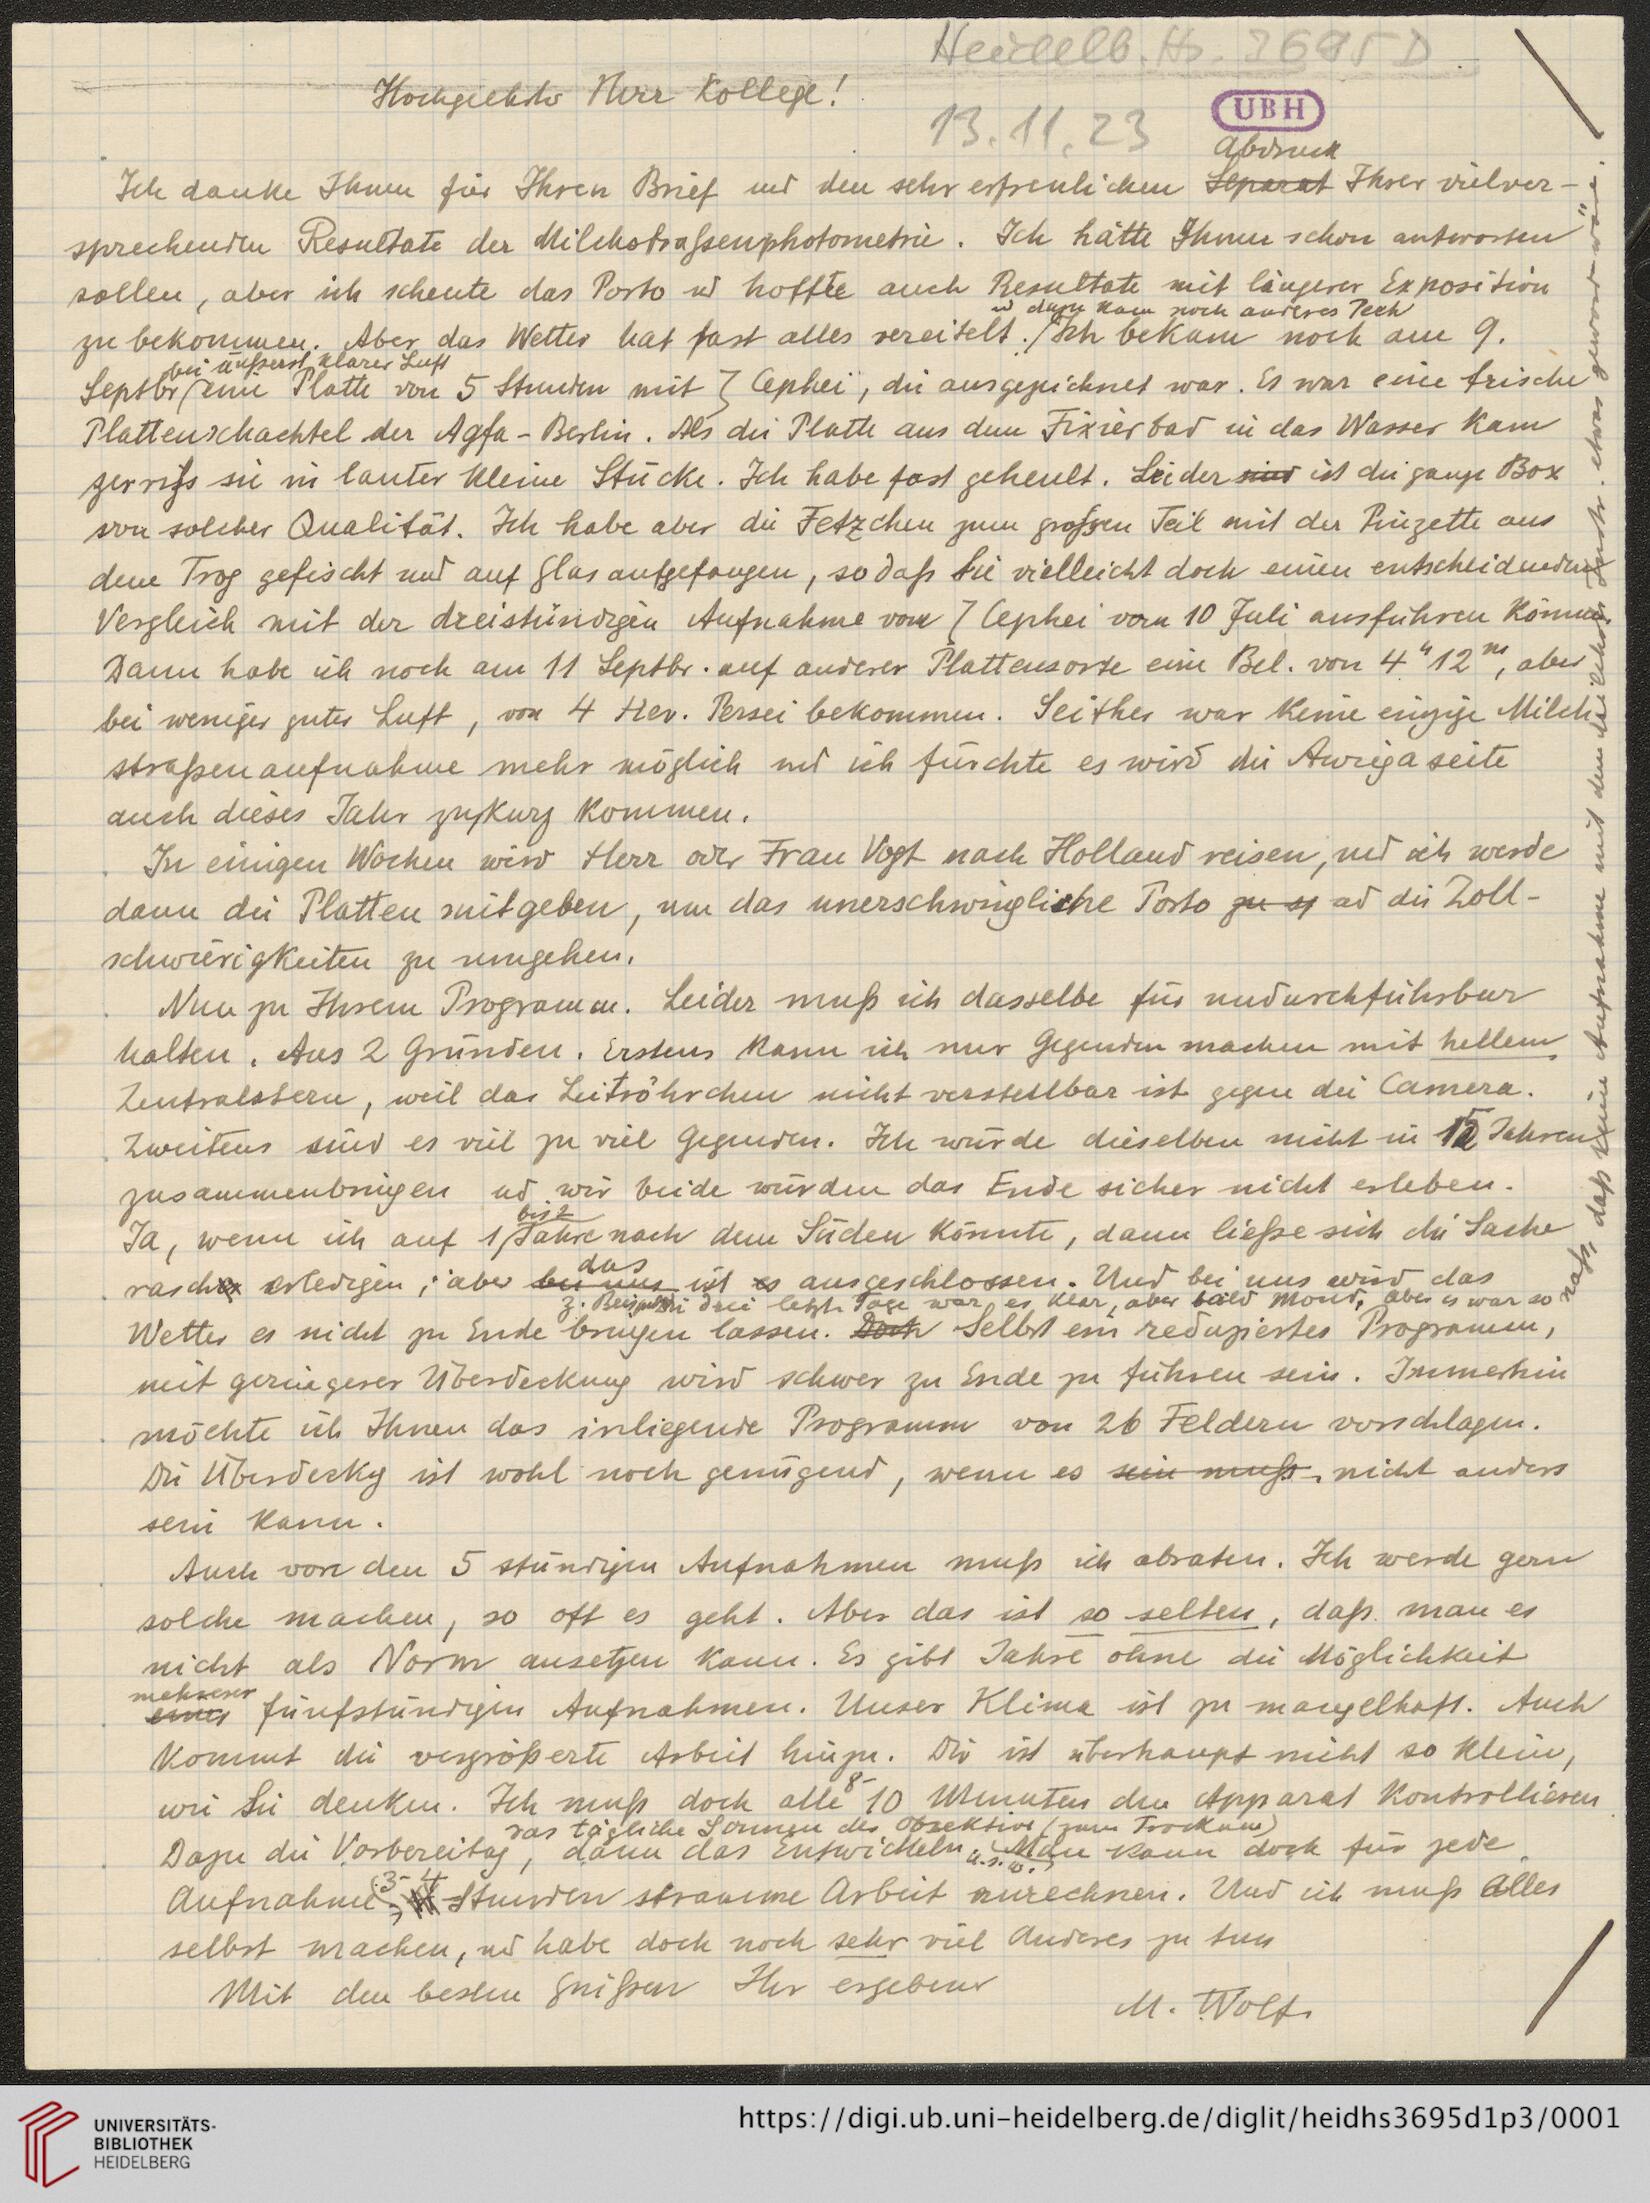 Heidelb. Hs. 3695 D
Hochgeehrter Herr Kollege!
13.11.23
UBH
Abdruck
Ich danke Ihnen für Ihren Brief und den sehr erfreulichen Separat Ihrer vielver-
sprechenden Resultate der Milchstraßenphotometrie. Ich hätte Ihnen schon antworten
sollen, aber ich scheute das Porto ud hoffte auch Resultate mit längerer Exposition
ud dazu kam noch anderes Pech
zu bekommen. Aber das Wetter hat fast alles vereitelt. Ich bekam noch am 9.
bei äußerst klarer Luft
Septbr eine Platte von 5 Stunden mit ζ Cephei, die ausgezeichnet war. Es war eine frische
Plattenschachtel der Agfa-Berlin. Als die Platte aus dem Fixierbad in das Wasser kam
zerriss sie in lauter kleine Stücke. Ich habe fast geheult. Leider sind ist die ganze Box
von solcher Qualität. Ich habe aber die Fetzchen zum großen Teil mit der Pinzette aus
dem Trog gefischt und auf Glas aufgefangen, sodaß Sie vielleicht doch einen entscheidenden
Vergleich mit der dreistündigen Aufnahme von ζ Cephei vom 10 Juli ausführen können.
Dann habe ich noch am 11 Septbr. auf anderer Plattensorte eine Bel. von 4ʰ 12ᵐ, aber
bei weniger guter Luft, von 4 Hev. Persei bekommen. Seither war keine einzige Milch-
straßenaufnahme mehr möglich und ich fürchte es wird die Aurigaseite
auch dieses Jahr zu kurz kommen.
In einigen Wochen wird Herr oder Frau Vogt nach Holland reisen, und ich werde
dann die Platten mitgeben, um das unerschwingliche Porto zu ud die Zoll-
schwierigkeiten zu umgehen.
Nun zu Ihrem Programm. Leider muß ich dasselbe für undurchführbar
halten. Aus 2 Gründen. Erstens kann ich nur Gegenden machen mit hellem
Zentralstern, weil das Leitröhrchen nicht verstellbar ist gegen die Camera.
Zweitens sind es viel zu viel Gegenden. Ich würde dieselben nicht in 15 Jahren
zusammenbringen ud wir beide würden das Ende sicher nicht erleben.
bis 2
Ja, wenn ich auf 1 Jahre nach dem Süden könnte, dann ließe sich die Sache
das
rascher erledigen; aber bei uns ist es ausgeschlossen. Und bei uns wird das
z. Beispiel die drei letzten Tage war es klar, aber bald Mond, aber es war so
naß, daß keine Aufnahme mit dem dreistündigen Instr. etwas geworden wäre.
Wetter es nicht zu Ende bringen lassen. Doch Selbst ein reduziertes Programm,
mit geringerer Überdeckung wird schwer zu Ende zu führen sein. Immerhin
möchte ich Ihnen das inliegende Programm von 26 Feldern vorschlagen.
Die Überdeckg ist wohl noch genügend, wenn es sein muß, nicht anders
sein kann.
Auch von den 5 stündigen Aufnahmen muß ich abraten. Ich werde gern
solche machen, so oft es geht. Aber das ist so selten, daß man es
nicht als Norm ansetzen kann. Es gibt Jahre ohne die Möglichkeit
mehrerer
einer fünfstündigen Aufnahmen. Unser Klima ist zu mangelhaft. Auch
kommt die vergrößerte Arbeit hinzu. Die ist überhaupt nicht so klein,
wie Sie denken. Ich muß doch alle 8-10 Minuten den Apparat kontrollieren
das tägliche Sonnen des Objektivs (zum Trocknen)
Dazu die Vorbereitg, dann das Entwickeln u.s.w. Man kann doch für jede
Aufnahme 3-4 Stunden stramme Arbeit anrechnen. Und ich muß Alles
selbst machen, ud habe doch noch sehr viel Anderes zu tun
Mit den besten Grüßen Ihr ergebener
M. Wolf.
UNIVERSITÄTS-
BIBLIOTHEK
HEIDELBERG
https://digi.ub.uni-heidelberg.de/diglit/heidhs3695d1p3/0001